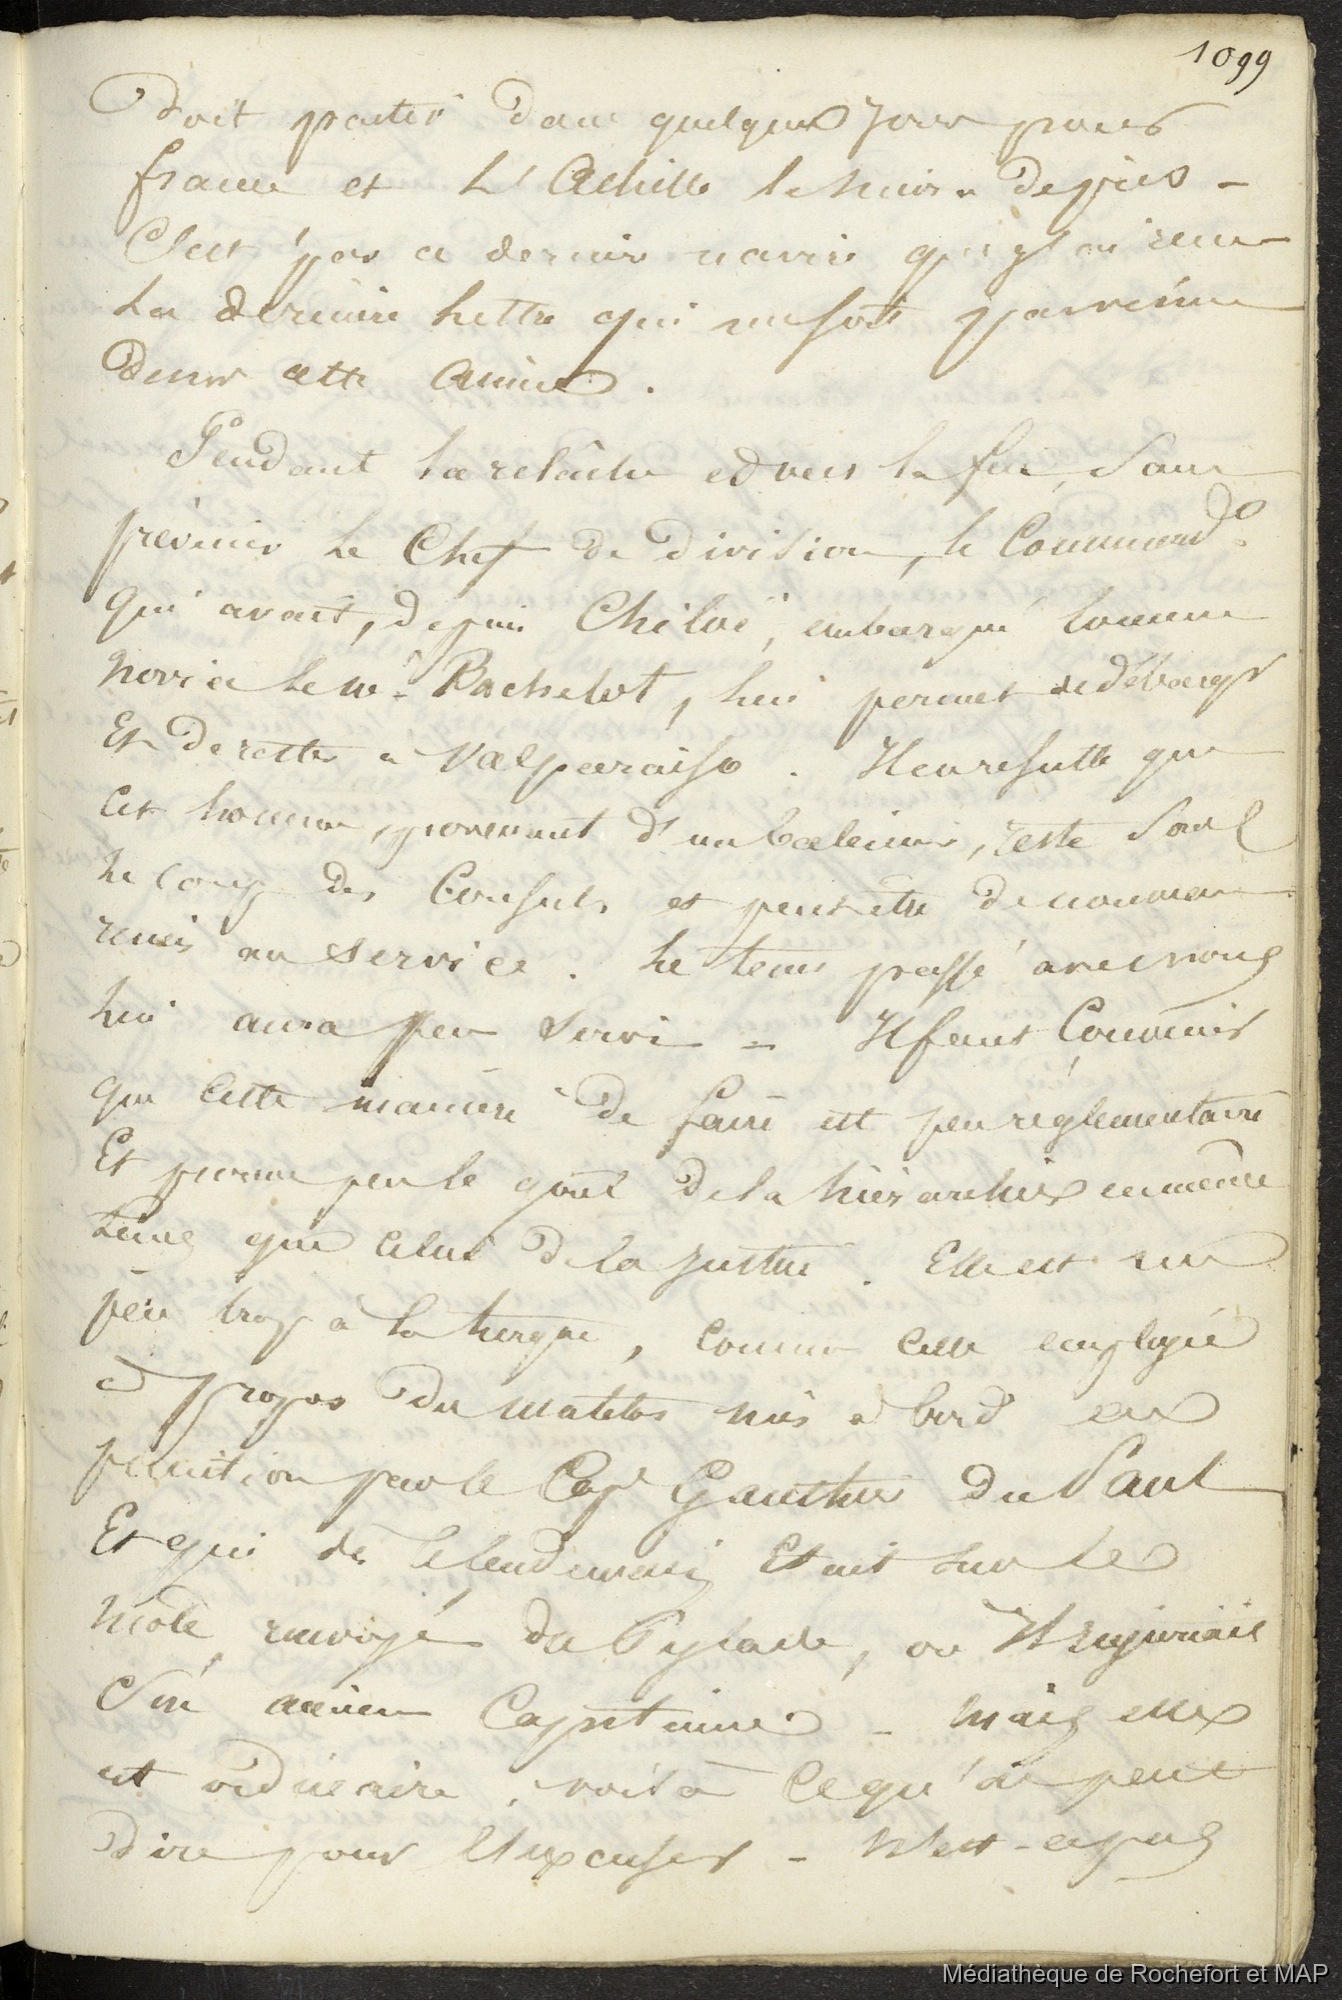 1099
doit partir dans quelques jours pour
france et L'Achille le suivra de près -
C'est par ce dernier navire que j'ai reçu
La dernière lettre qui me soit parvenue
dans cette année.
Pendant la relâche et vers la fin, sans
prévenir le Chef de division, le Command.t
qui avait, depuis Chiloë, embarqué comme
novice le né Bachelot, lui permet de débarqr
Et de rester à Valparaiso. Il en résulte que
Cet homme, provenant d'un baleinier, reste sous
le coup des Consuls et peut être de nouveau
remis au service. Le tems passé avec nous
lui aura peu servi - Il faut Convenir
que cette manière de faire est peu réglementaire
Et prouve peu le goût de la hiérarchie en même
tems que celui de la justice. Elle est un
peu trop à la turque, comme celle employée
à propos du matelot mis à bord en
punition par le Cap.e Gauthier du Paul
Et qui dès le lendemain Etait sur le
môle, renvoyé du Pylade, où Il injuriait
Son ancien Capitaine - Mais elle
est ordinaire, voilà ce qu'on peut
dire pour l'excuser - N'est-ce pas
Médiathèque de Rochefort et MAP